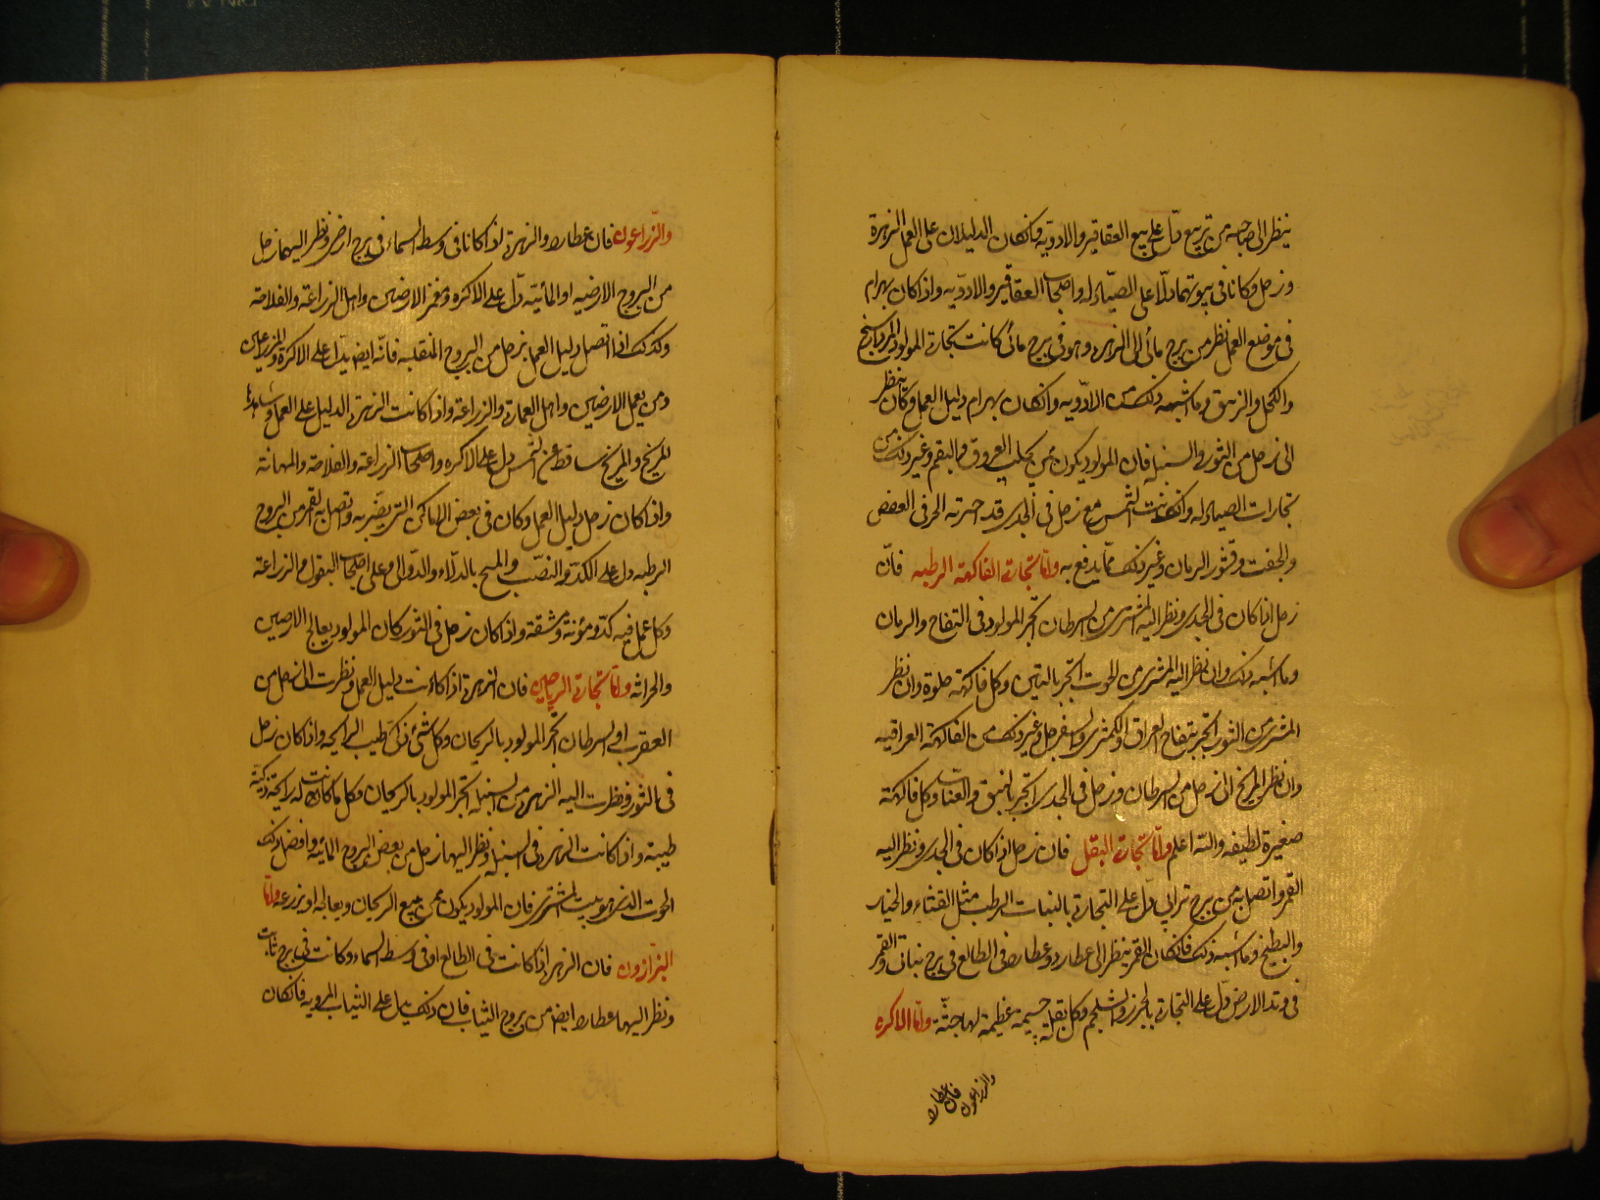 ينظر الى صاحبه من تربيع دلّ على بيع العقاقير والادويّه فانكان الدليلان على العمل الزهرة
وزحل وكانا فى بيوتهما دلّا على الصيادله واصحاب العقاقير والادويّه واذا كان بهرام
فى موضع العمل نظر من برج مائى الى الزهره وهو فى برج مائى كانت تجارة المولود
والكحل والزيبق وما اشبهه ذلك من الادويّه وانكان بهرام دليل العمل وكان ينظر
الى زحل من الثور والسنبله فان المولود يكون ممن يجلب العروق والبقم وغير ذلك من
تجارات الصيادله وانكانت الشمس مع زحل فى الجدى قد حرفى العفص
والجفت وقشور الرمان وغير ذلك ممّا يدفع به وامّا تجارة الفاكهة الرطبه فانّ
زحل اذا كان فى الجدى ونظر اليه المشترى من السرطان اتجر المولود فى التفاح والرمان
وما اشبه ذلك وان نظر اليه المشترى من الحوت اتجر بالتين وكل فاكهة حلوة وان نظر
المشترى من الثور اتجر بتفاح العراق والكمثرى والسفرجل وغير ذلك من الفاكهة العراقيه
وان نظر المريخ الى زحل من السرطان وزحل فى الجدى اتجر بالنبق والعناب وكل فاكهة
صغيرة لطيفه والله اعلم وامّا تجارة البقل فان زحل اذا كان فى الجدى ونظر اليه
القمر واتصل به من برج ترابي دلّ على التجارة بالنبات الرطب مثل القثاء والخيار
والبطيخ وما اشبه ذلك فانكان القمر ينظر الى عطارد وعطارد فى الطالع فى برج نباتى والقمر
فى وتد الارض دلّ على التجارة بالجزر والشلجم وكل بقلة جسيمة عظيمة لها جثّة وامّا الاكره
والزراعون فان عطارد
والزّراعون فان عطارد والزهرة اذا كانا فى وسط السماء فى برج ارضى ونظر اليهما زحل
من البروج الارضيه او المائيّه دلّ على الاكره وحفر الارضين واهل الزراعة والفلاحة
وكذلك اذا اتصل دليل العمل بزحل من البروج المنقلبه فانّه ايضا يدّل على الاكرة والمزارعين
ومن يعمل الارضين واهل العمارة والزراعة واذا كانت الزهرة الدليل على العمل وشاهدها
المريخ والمريخ ساقط عن الشمس دل على الاكره واصحاب الزراعة والفلاحة والمهانة
واذا كان زحل دليل العمل وكان فى بعض الاماكن التى يضرّ به واتصل به القمر من البروج
الرطبه دل على الكدّ والنصب والمتح بالدلاء والدوالى وعلى اصحاب البقول والزراعة
وكل عمل فيه كدّ ومؤنة ومشقة واذا كان زحل فى الثور كان المولود يعالج الارضين
والحراثه وامّا تجارة الرياحين فان الزهرة اذا كانت دليل العمل ونظرت الى زحل من
العقرب او السرطان اتجر المولود بالريحان وكل شئ ذكى طيب الرايحه واذا كان زحل
فى الثور ونظرت اليه الزهره من السنبله اتجر المولود بالريحان وكل ما كانت له رايحة ذكيّة
طيبة واذا كانت الزهره فى السنبله ونظر اليها زحل من بعض البروج المائيه وافضل ذلك
الحوت الذى هو بيت المشترى فان المولود يكون ممن يبيع الريحان ويعالجه او يزرعه وامّا
البزازون فان الزهره اذا كانت فى الطالع او فى وسط السماء وكانت فى برج ثابت
ونظر اليها عطارد ايضا من بروج الثياب فان ذلك يدل على الثياب المرويه فانكان